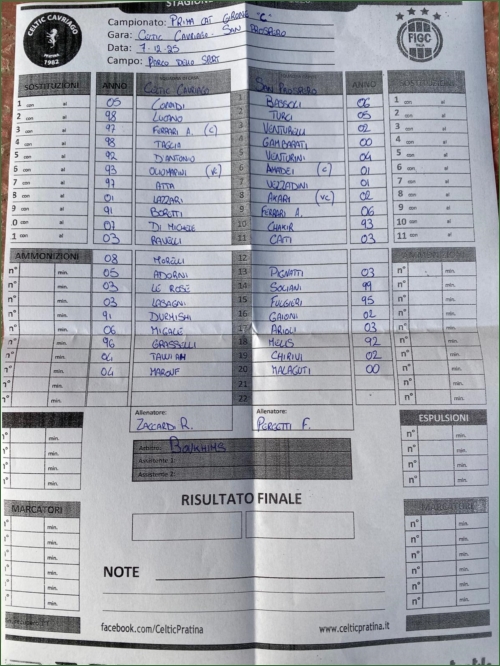 STAGIONE
CELTIC CAVRIAGO
PRATINA
1962
Campionato: PRIMA CAT GIRONE "C"
Gara: CELTIC CAVRIAGO - SAN PROSPERO
Data: 7-12-25
Campo: PARCO DELLO SPORT
FIGC
SOSTITUZIONI ANNO CELTIC CAVRIAGO SAN PROSPERO ANNO SOSTITUZIONI
1 con al 05 CORRADI 1 BASSOLI 06 1 con al
2 con al 98 LUCANO 2 TURCI 05 2 con al
3 con al 97 FERRARI A. (C) 3 VENTURELLI 02 3 con al
4 con al 98 TAGLIA 4 GAMBARATI 00 4 con al
5 con al 92 D'ANTONIO 5 VENTURINI 04 5 con al
6 con al 93 6 AMADEI (C) 01 6 con al
7 con al 97 ATTA 7 VEZZADINI 01 7 con al
8 con al 01 LAZZARI 8 AKARI (VC) 02 8 con al
9 con al 91 BORETTI 9 FERRARI A. 06 9 con al
10 con al 07 DI MICHELE 10 CHAKIR 93 10 con al
1 con al 03 RAVELLI 11 CAITI 03 11 con al
AMMONIZIONI 08 MORELLI 12
n° min. 05 ADORNI 13 PIGNATTI 03
n° min. 03 LE ROSE 14 SOLIANI 99
n° min. 03 LASAGNI 15 FULGIERI 95
n° min. 91 DURMISHI 16 GAIONI 02
n° min. 06 MIGALE 17 ARIOLI 03
n° min. 96 GRASSELLI 18 MELIS 92
n° min. 04 TAWIAH 19 CHIRIVI 02
n° min. 04 MAROUF 20 MALAGUTI 00
n° min. 21
22
Allenatore: Allenatore:
ZACCARDI R. PERCETTI F.
ESPULSIONI
Arbitro:
Assistente 1:
Assistente 2:
RISULTATO FINALE
MARCATORI MARCATORI
n° min. n° min.
n° min. n° min.
n° min. n° min.
n° min. n° min.
n° min. n° min.
n° min. n° min.
NOTE
facebook.com/CelticPratina www.celticpratina.it